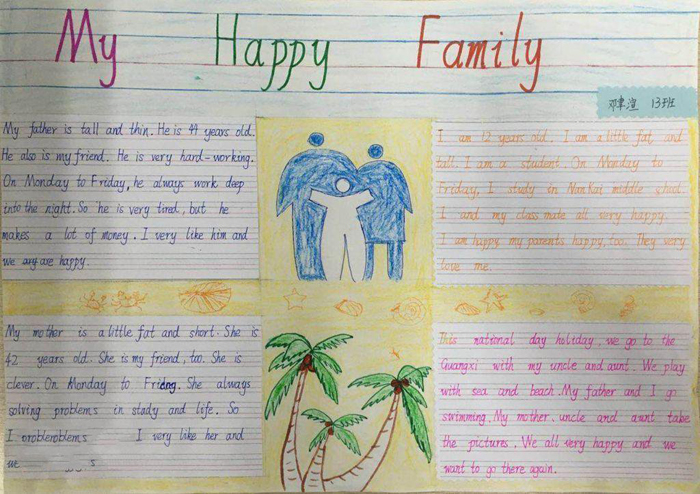 My Happy Family
13班
My father is tall and thin. He is 44 years old.
He also is my friend. He is very hard-working.
On Monday to Friday, he always work deep
into the night. So he is very tired, but he
makes a lot of money. I very like him and
we are happy.
I am 12 years old. I am a little fat and
tall. I am a student. On Monday to
Friday, I study in NanKai middle
I and my class mate all very happy.
I am happy my parents happy, too. They very
love me.
My mother is a little fat and short. She is
42 years old. She is my friend, too. She is
clever. On Monday to She always
solving problems in study and life. So
I I very like her and
we
This national day holiday, we go to the
Guangxi with my uncle and aunt. We play
with sea and beach. My father and I go
swimming. My mother, uncle and aunt take
the pictures. We all very happy and we
want to go there again.